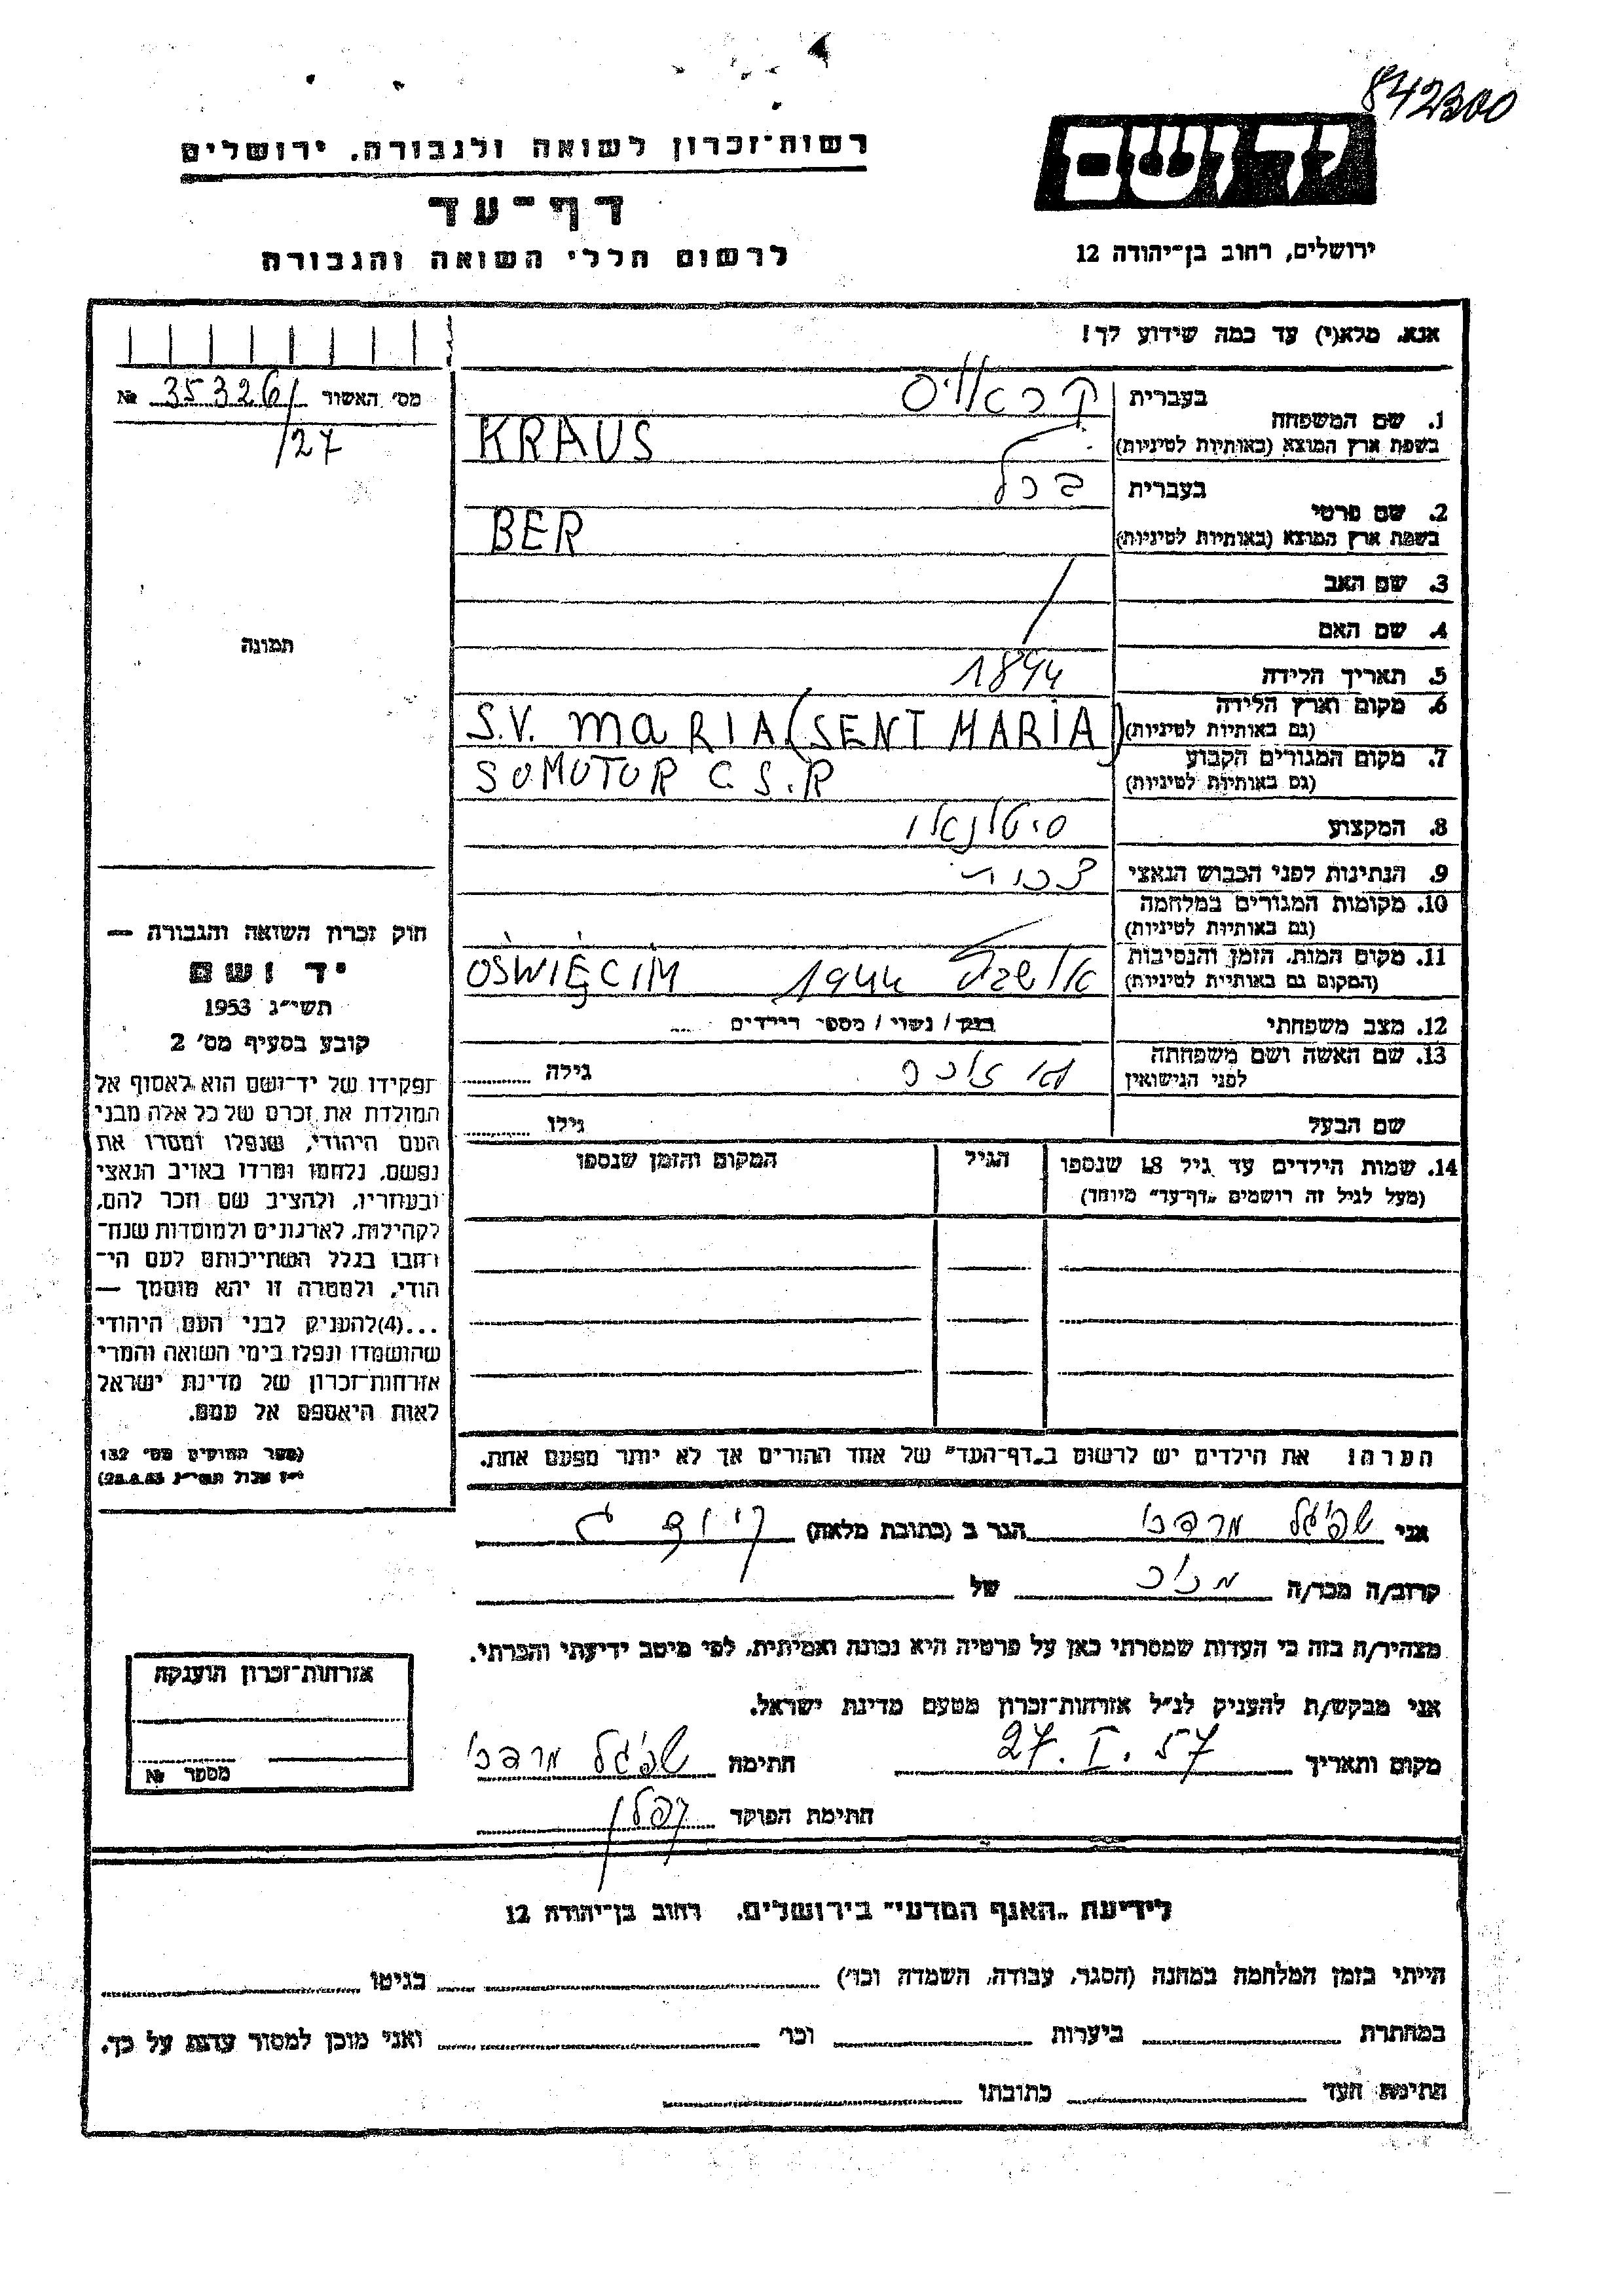 842300
רשות־זכרון לשואה ולגבורה. ירושלים
יד ושם
דף־עד
לרשום חללי השואה והגבורה
ירושלים, רחוב בן־יהודה 12
אנא. מלא(י) עד כמה שידוע לך!
מס׳ האשור 35326/ №
/27
תמונה
1. שם המשפחה
בעברית קראוס
בשפת ארץ המוצא (באותיות לטיניות) KRAUS
2. שם פרטי
בעברית
בשפת ארץ המוצא (באותיות לטיניות) BER
3. שם האב
4. שם האם
5. תאריך הלידה 1894
6. מקום וארץ הלידה
(גם באותיות לטיניות) S.V. MARIA (SENT MARIA)
7. מקום המגורים הקבוע
(גם באותיות לטיניות) SOMOTOR C.S.R
8. המקצוע סיטונאי
9. הנתינות לפני הכבוש הנאצי צכית
10. מקומות המגורים במלחמה
(גם באותיות לטיניות)
11. מקום המות. הזמן והנסיבות
(המקום גם באותיות לטיניות) 1944 OŚWIĘCIM
12. מצב משפחתי רוק / נשוי / מספר הילדים
13. שם האשה ושם משפחתה
לפני הנישואין גילה
שם הבעל גילו
14. שמות הילדים עד גיל 18 שנספו
(מעל לגיל זה רושמים „דף־עד״ מיוחד)
הגיל
המקום והזמן שנספו
הערה: את הילדים יש לרשום ב„דף־העד״ של אחד ההורים אך לא יותר מפעם אחת.
חוק זכרון השואה והגבורה —
יד ושם
תשי״ג 1953
קובע בסעיף מס׳ 2
תפקידו של יד־ושם הוא לאסוף אל
המולדת את זכרם של כל אלה מבני
העם היהודי, שנפלו ומסרו את
נפשם, נלחמו ומרדו באויב הנאצי
ובעוזריו, ולהציב שם וזכר להם,
לקהילות, לארגונים ולמוסדות שנח־
רבו בגלל השתייכותם לעם הי־
הודי, ולמטרה זו יהא מוסמך —
...(4)להעניק לבני העם היהודי
שהושמדו ונפלו בימי השואה והמרי
אזרחות־זכרון של מדינת ישראל
לאות היאספם אל עמם.
(ספר החוקים מס׳ 132
אני שפיגל מרדכי הגר ב (כתובת מלאה)
קרוב/ה מכר/ה מכיר של
מצהיר/ה בזה כי העדות שמסרתי כאן על פרטיה היא נכונה ואמיתית, לפי מיטב ידיעתי והכרתי.
אני מבקש/ת להעניק לנ״ל אזרחות־זכרון מטעם מדינת ישראל.
מקום ותאריך 27.I.57 חתימה שפיגל מרדכי
חתימת הפוקד
אזרחות־זכרון הוענקה
מספר №
לידיעת „האגף המדעי״ בירושלים. רחוב בן־יהודה 12
הייתי בזמן המלחמה במחנה (הסגר, עבודה, השמדה וכו׳) בגיטו
במחתרת ביערות וכו׳ ואני מוכן למסור עדות על כך.
חתימת העד כתובתו